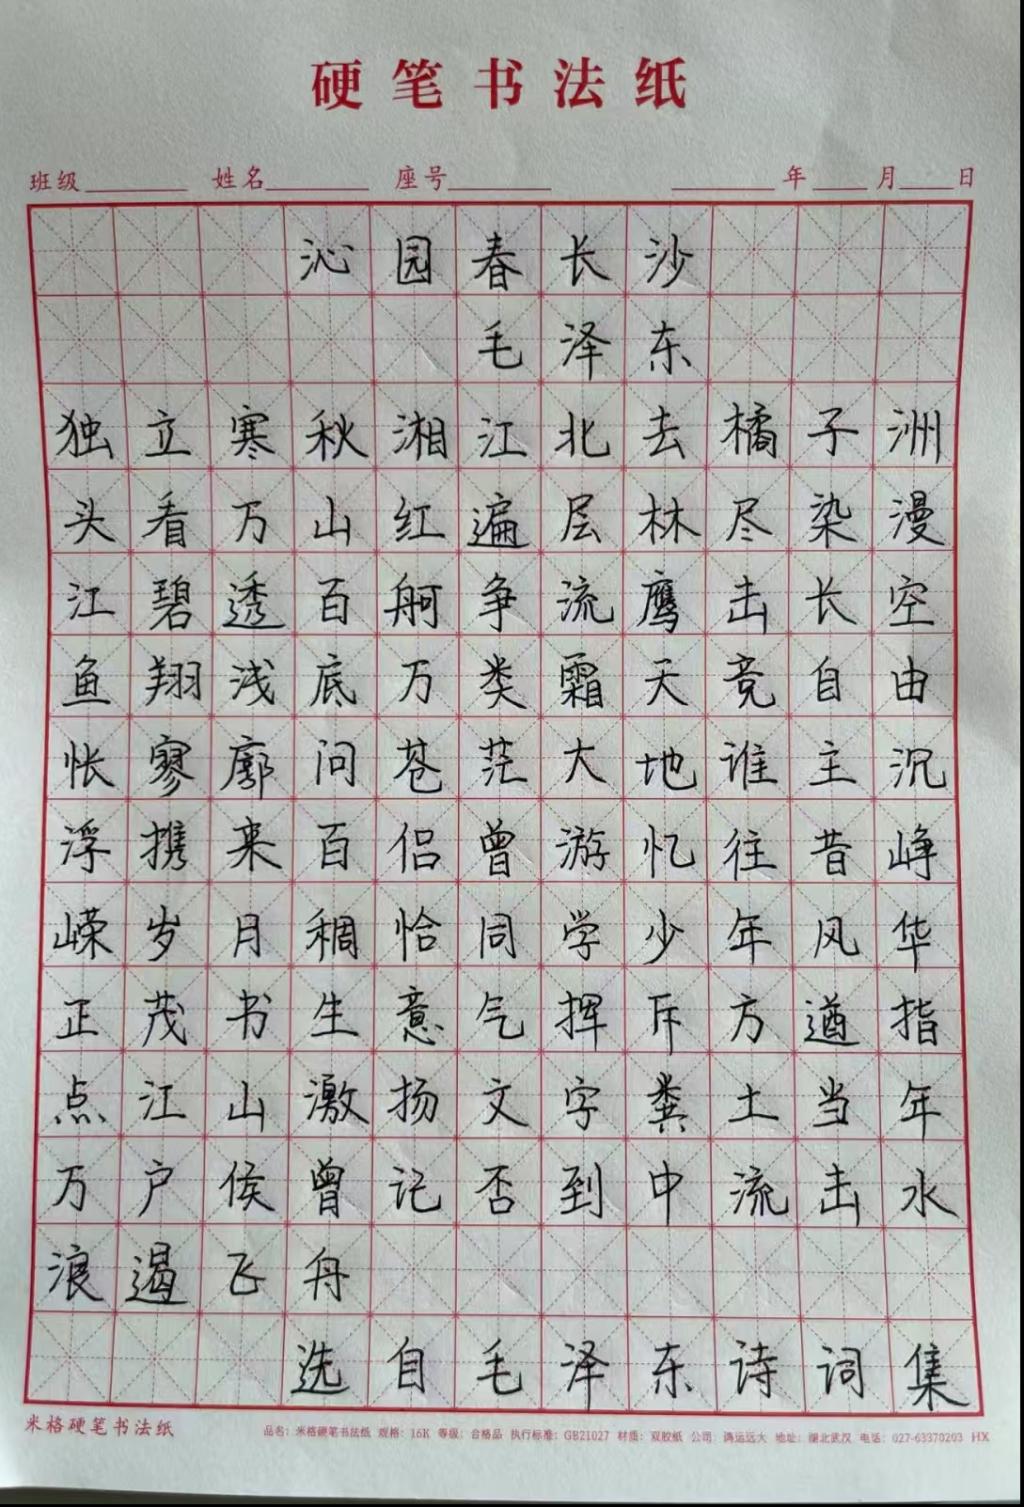 硬笔书法纸
班级 姓名 座号 年 月 日
沁园春长沙
毛泽东
独立寒秋湘江北去橘子洲
头看万山红遍层林尽染漫
江碧透百舸争流鹰击长空
鱼翔浅底万类霜天竞自由
怅寥廓问苍茫大地谁主沉
浮携来百侣曾游忆往昔峥
嵘岁月稠恰同学少年风华
正茂书生意气挥斥方遒指
点江山激扬文字粪土当年
万户侯曾记否到中流击水
浪遏飞舟
选自毛泽东诗词集
米格硬笔书法纸
品名：米格硬笔书法纸 规格：16K 等级：合格品 执行标准：GB21027 材质：双胶纸 公司：鸿运远大 地址：湖北武汉 电话：027-63370203 HX